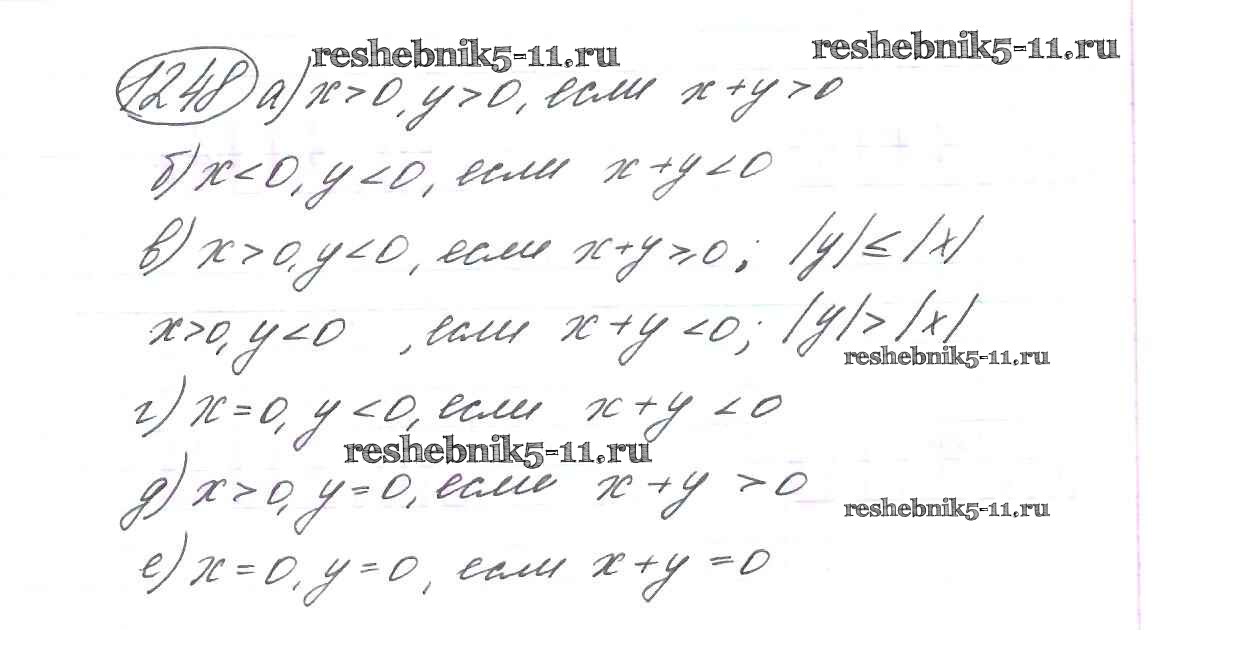 reshebnik5-11.ru reshebnik5-11.ru
1248 а) x>0, y>0, если x+y>0
б) x<0, y<0, если x+y<0
в) x>0, y<0, если x+y⩾0; |y|≤|x|
x>0, y<0 , если x+y<0; |y|>|x|
reshebnik5-11.ru
г) x=0, y<0, если x+y<0
reshebnik5-11.ru
д) x>0, y=0, если x+y>0
reshebnik5-11.ru
е) x=0, y=0, если x+y=0